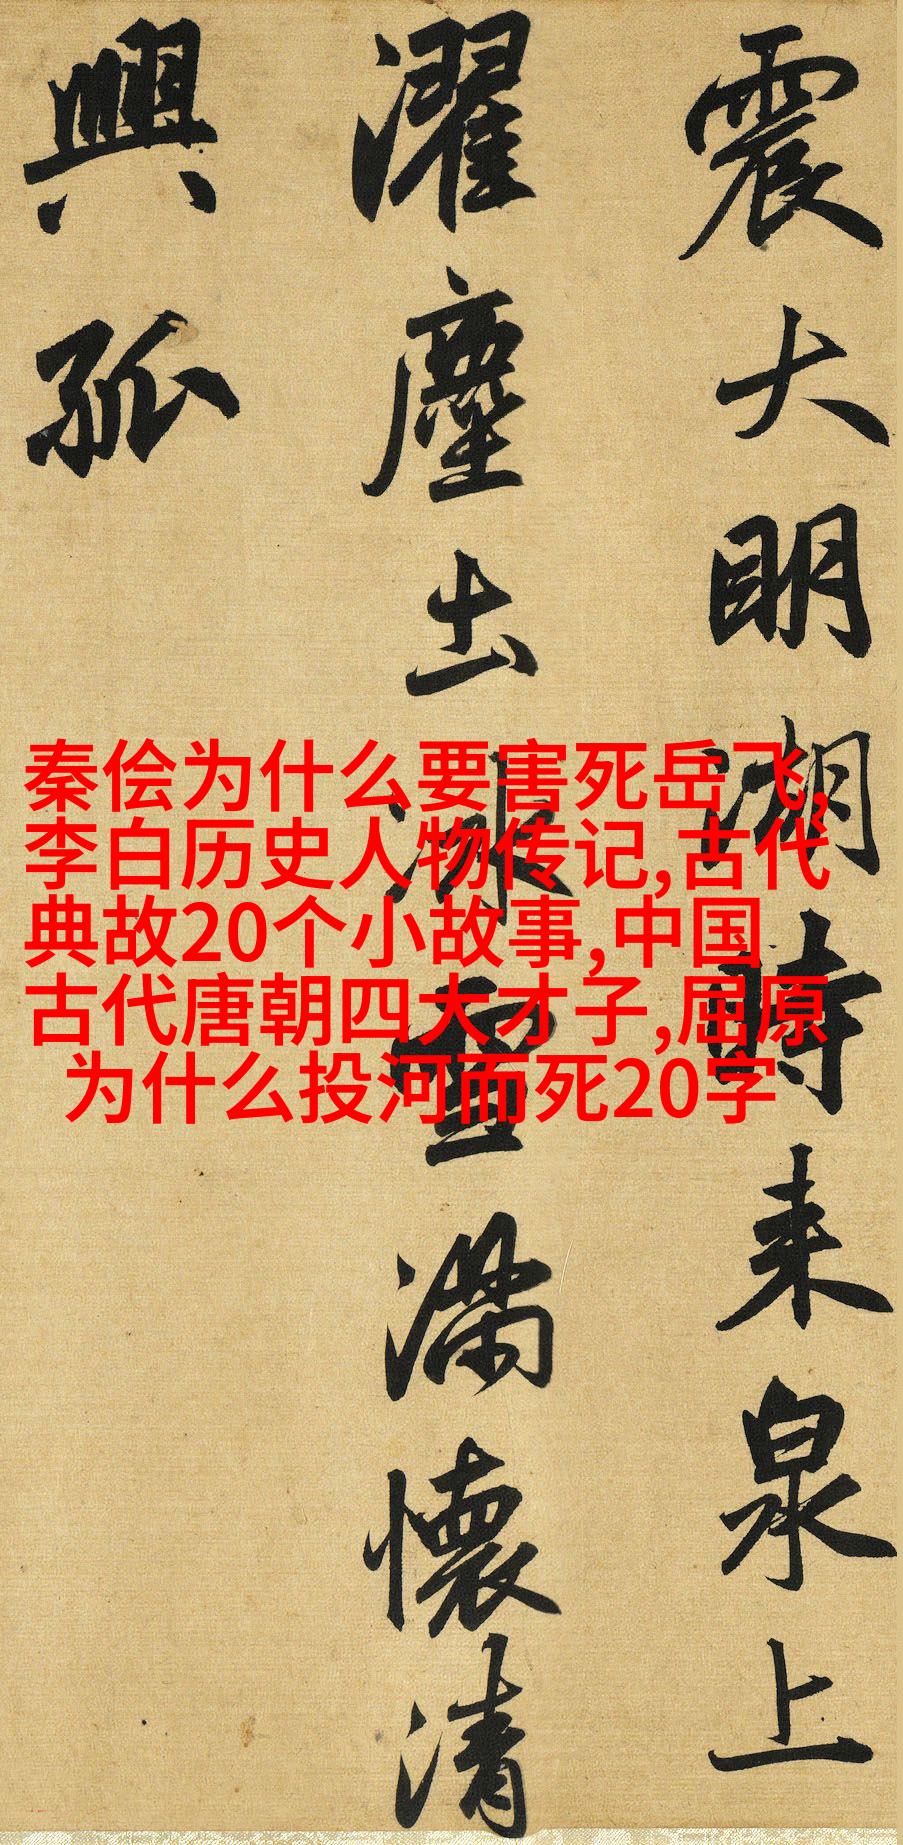 震大明湖時来泉上
濯塵出冰雪滿懷清
興孤
秦侩为什么要害死岳飞,
李白历史人物传记,古代
典故20个小故事,中国
古代唐朝四大才子,屈原
为什么投河而死20字